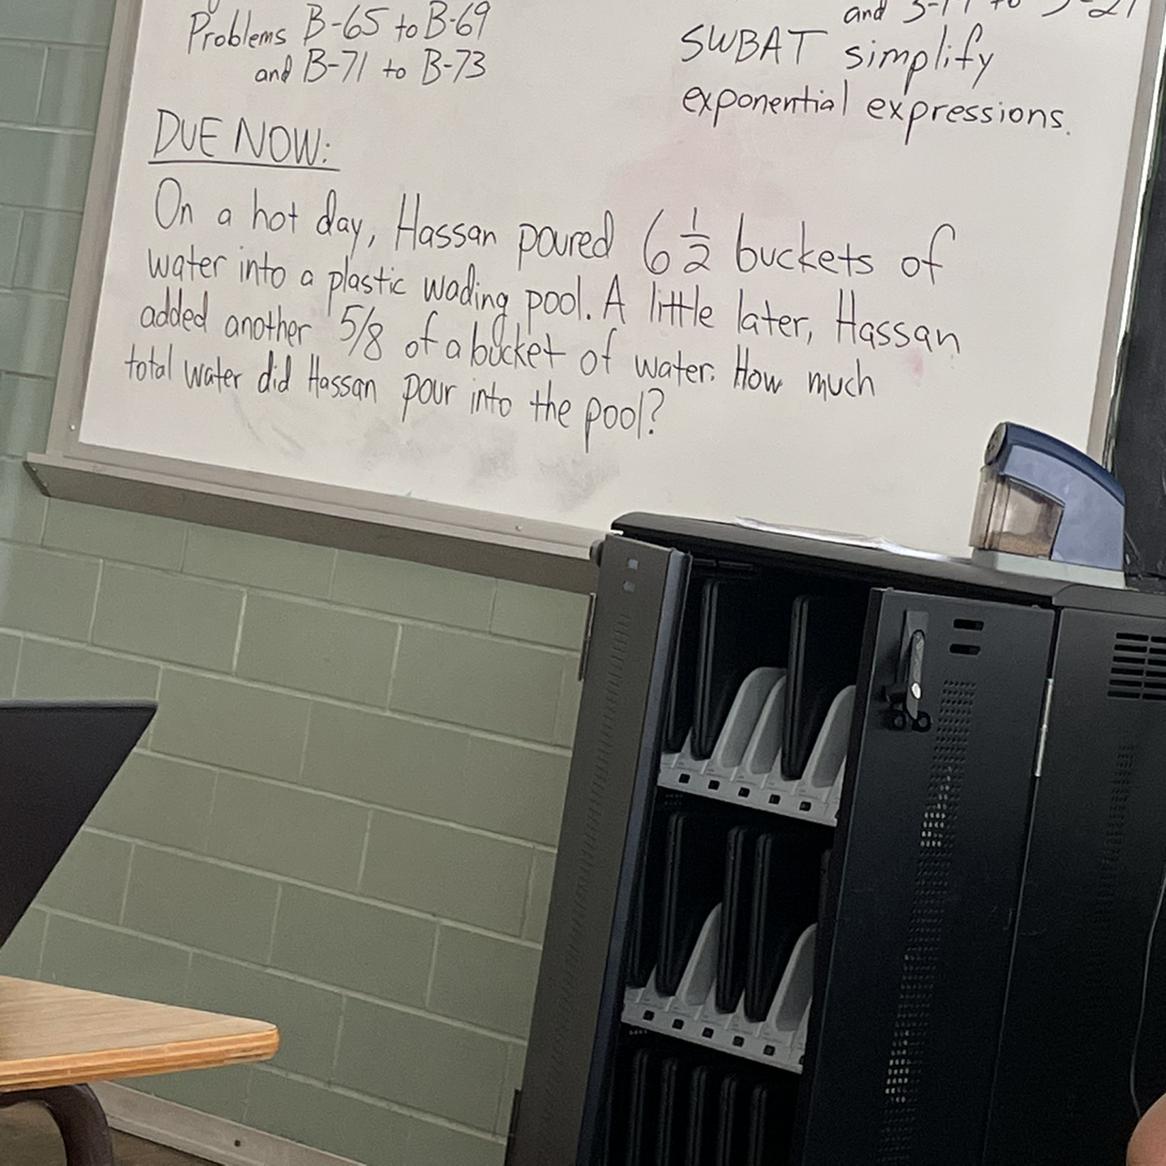 Problems B-65 to B-69
and B-71 to B-73
and
SWBAT simplify
exponential expressions.
DUE NOW:
On a hot day, Hassan poured 6 1/2 buckets of
water into a plastic wading pool. A little later, Hassan
added another 5/8 of a bucket of water. How much
total water did Hassan pour into the pool?